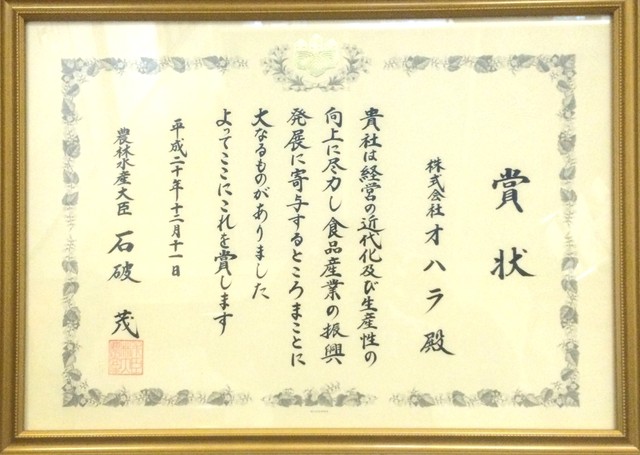 賞状
株式会社オハラ殿
貴社は経営の近代化及び生産性の
向上に尽力し食品産業の振興
発展に寄与するところまことに
大なるものがありました
よってここにこれを賞します
平成二十年十二月十一日
農林水産大臣 石破 茂